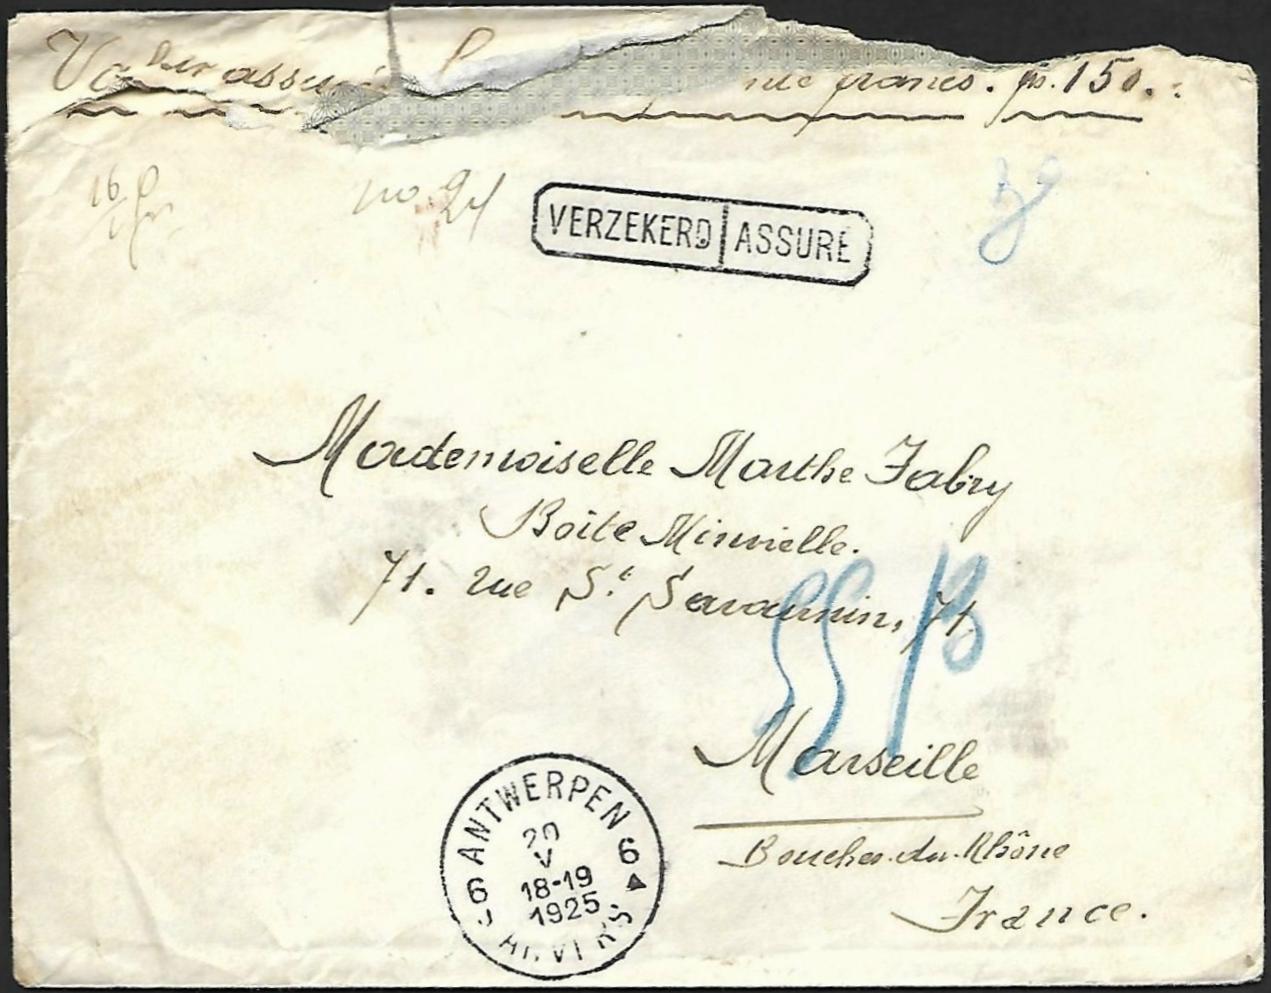 Valeur assu francs. frs. 150.
16 gr.
no 24
VERZEKERD ASSURÉ
Mademoiselle Marthe Fabry
Boite Minvielle.
71. rue St. Savournin, 71.
Marseille
Bouches-du-Rhône
France.
ANTWERPEN
6 6
20
V
18-19
1925
ANVERS